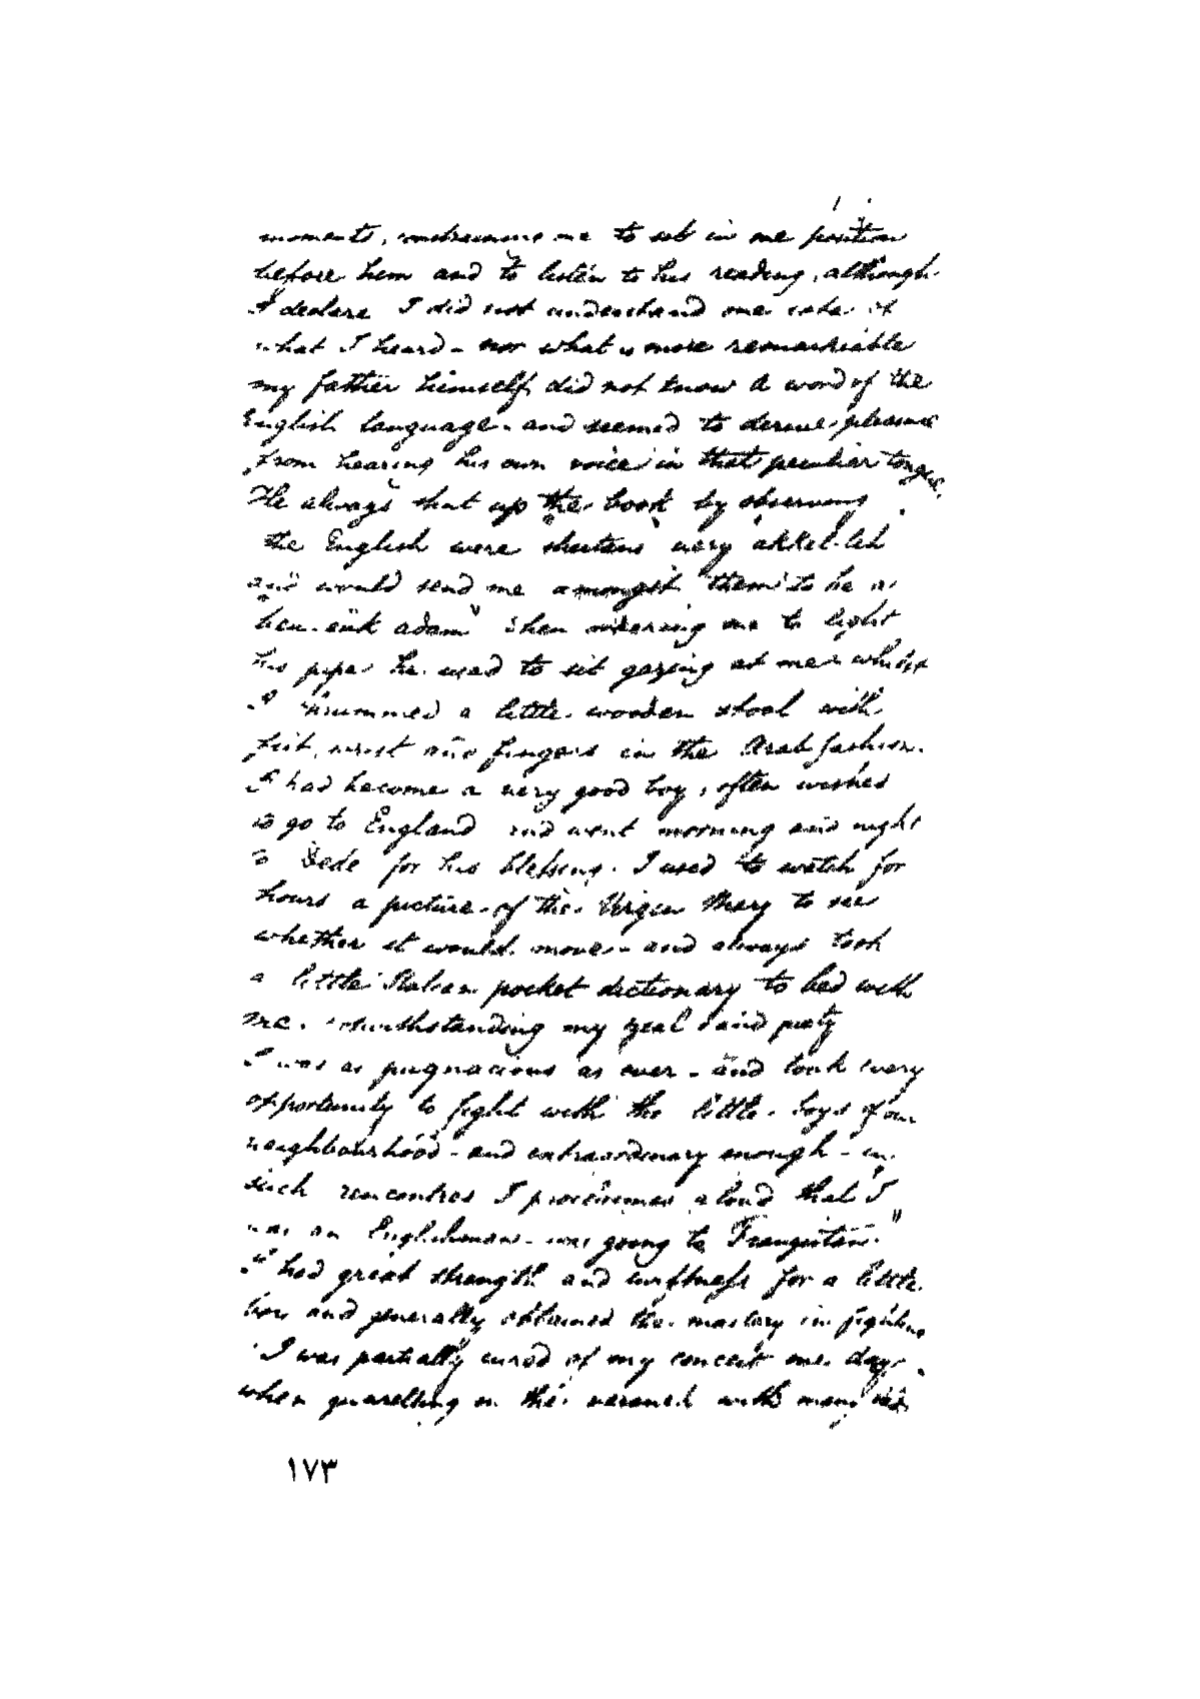 moments, constraining me to sit in one position
before him and to listen to his reading, although
I declare I did not understand one of
what I heard - nor what is more remarkable
my father himself did not know a word of the
English language - and seemed to derive pleasure
from hearing his own voice in that peculiar tongue.
He always shut up the book by observing
the English were very akkel-leh
and would send me amongst them to be a
adam" then ordering me to light
his pipe he used to sit gazing at me whilst
I drummed a little wooden stool with
fist, wrist and fingers in the Arab fashion.
I had become a very good boy, often wished
to go to England and went morning and night
to Dede for his blessing. I used to watch for
hours a picture of the Virgin Mary to see
whether it would move - and always took
a little Italian pocket dictionary to bed with
me. Notwithstanding my zeal and piety
I was as pugnacious as ever - and took every
opportunity to fight with the little boys of our
neighbourhood - and extraordinary enough - in
such rencontres I proclaimed aloud that I
was an Englishman - was going to Franguistan."
I had great strength and swiftness for a little
boy and generally obtained the mastery in fighting
I was partially cured of my conceit one day
when quarelling in the with many
١٧٣